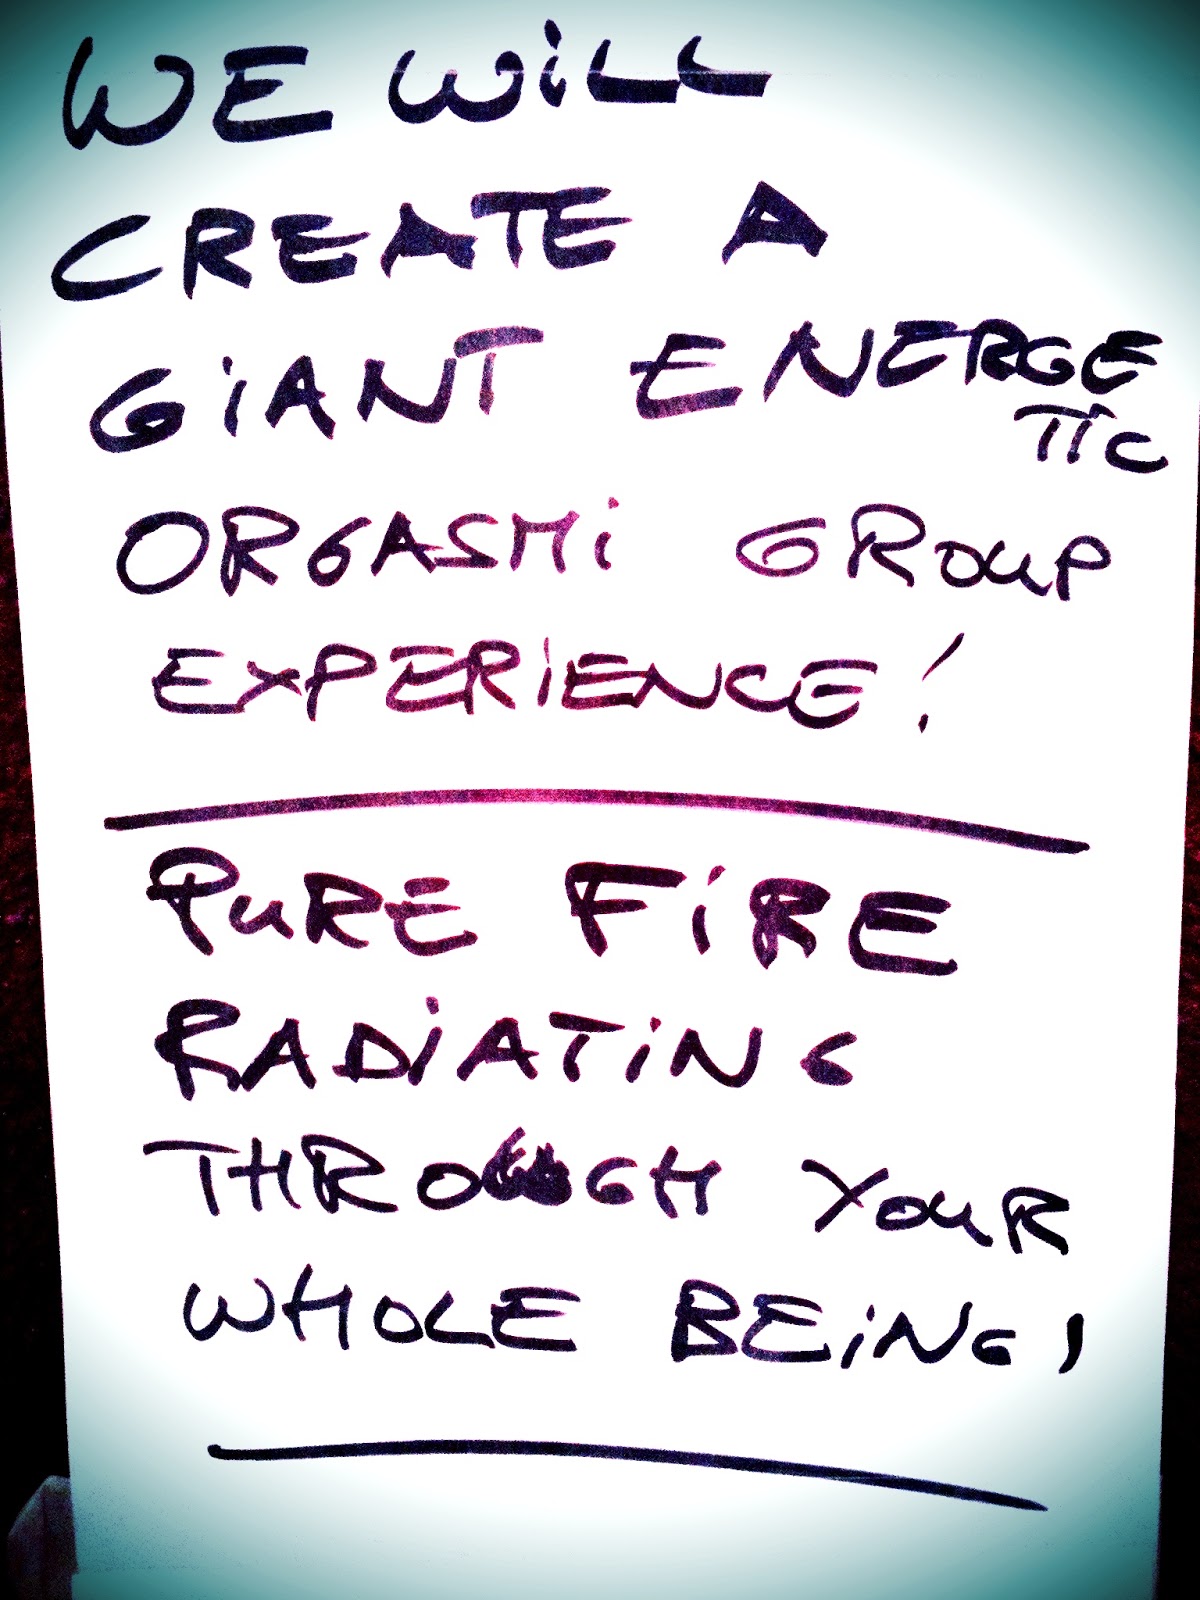 WE WiLL
CREATE A
GiANT ENERGE
TiC
ORGASMi GROUP
EXPERiENCE!
PURE FiRE
RADiATiNG
THROUGH YOUR
WHOLE BEiNG,